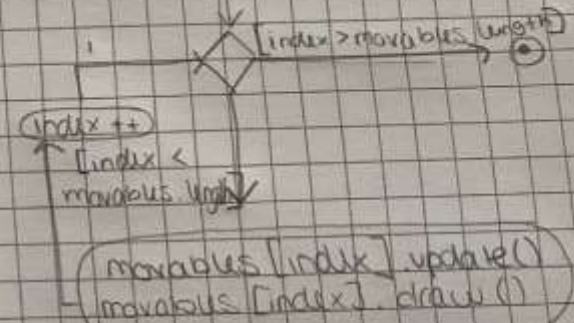 [index > movables.length]
index ++
[index <
movables.length]
movables [index].update()
movables [index].draw()